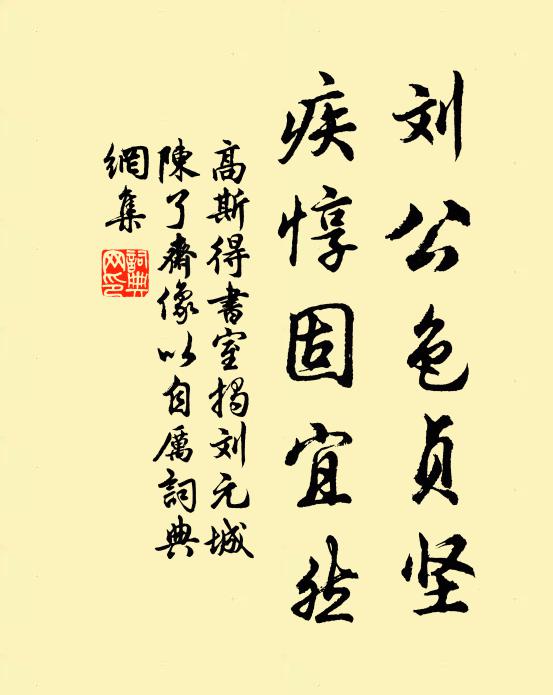 刘公色贞坚
疾惇固宜然
高斯得书室揭刘元城
陳了齋像以自厲詞典
網集
詞典
网印